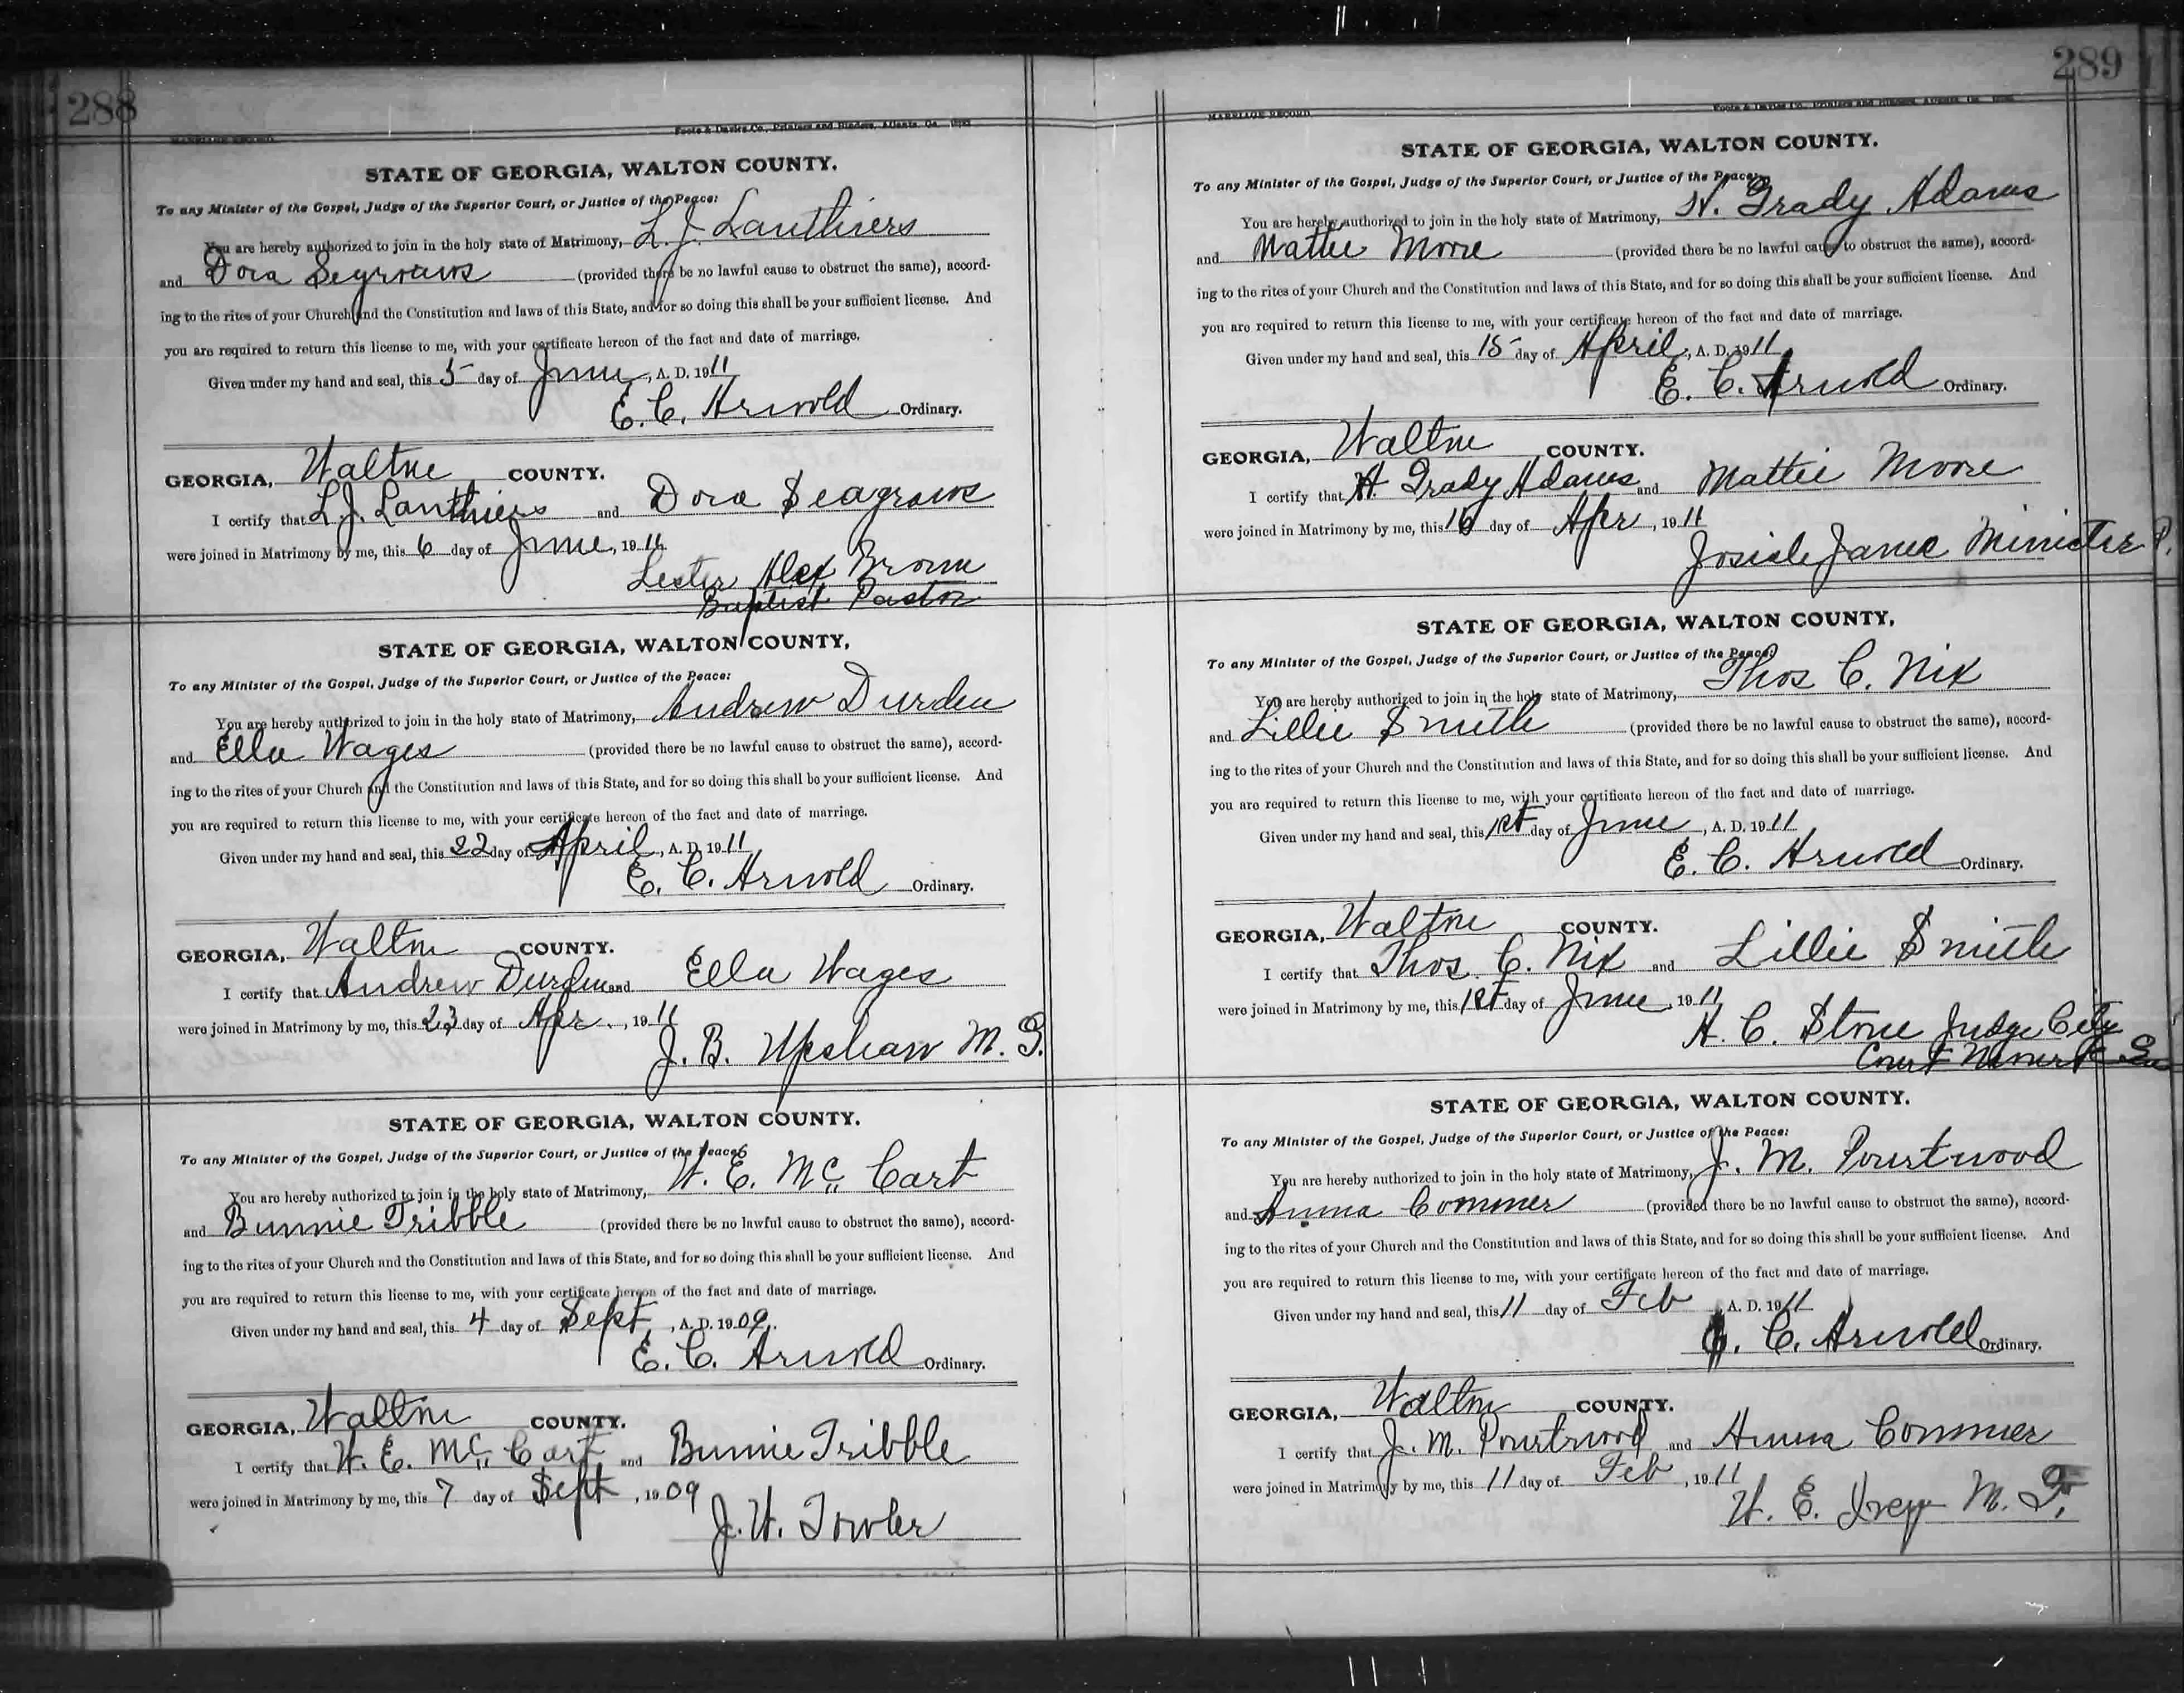 288
MARRIAGE RECORD
Foote & Davies Co., Printers and Binders, Atlanta, Ga.
STATE OF GEORGIA, WALTON COUNTY.
To any Minister of the Gospel, Judge of the Superior Court, or Justice of the Peace:
You are hereby authorized to join in the holy state of Matrimony, L. J. Lanthiers
and Dora Segraves (provided there be no lawful cause to obstruct the same), accord-
ing to the rites of your Church and the Constitution and laws of this State, and for so doing this shall be your sufficient license. And
you are required to return this license to me, with your certificate hereon of the fact and date of marriage.
Given under my hand and seal, this 5 day of June, A. D. 1911
E. C. Arnold Ordinary.
GEORGIA, Walton COUNTY.
I certify that L. J. Lanthiers and Dora Seagraves
were joined in Matrimony by me, this 6 day of June, 1911
Lester Alex Brown
Baptist Pastor
STATE OF GEORGIA, WALTON COUNTY,
To any Minister of the Gospel, Judge of the Superior Court, or Justice of the Peace:
You are hereby authorized to join in the holy state of Matrimony, Andrew Durden
and Ella Wages (provided there be no lawful cause to obstruct the same), accord-
ing to the rites of your Church and the Constitution and laws of this State, and for so doing this shall be your sufficient license. And
you are required to return this license to me, with your certificate hereon of the fact and date of marriage.
Given under my hand and seal, this 22 day of April, A. D. 1911
E. C. Arnold Ordinary.
GEORGIA, Walton COUNTY.
I certify that Andrew Durden and Ella Wages
were joined in Matrimony by me, this 23 day of Apr., 1911
J. B. Upshaw M. G.
STATE OF GEORGIA, WALTON COUNTY.
To any Minister of the Gospel, Judge of the Superior Court, or Justice of the Peace:
You are hereby authorized to join in the holy state of Matrimony, W. E. Mc Cart
and Bunnie Tribble (provided there be no lawful cause to obstruct the same), accord-
ing to the rites of your Church and the Constitution and laws of this State, and for so doing this shall be your sufficient license. And
you are required to return this license to me, with your certificate hereon of the fact and date of marriage.
Given under my hand and seal, this 4 day of Sept, A. D. 1909.
E. C. Arnold Ordinary.
GEORGIA, Walton COUNTY.
I certify that W. E. Mc Cart and Bunnie Tribble
were joined in Matrimony by me, this 7 day of Sept, 1909
J. W. Fowler
289
MARRIAGE RECORD
STATE OF GEORGIA, WALTON COUNTY.
To any Minister of the Gospel, Judge of the Superior Court, or Justice of the Peace:
You are hereby authorized to join in the holy state of Matrimony, H. Grady Adams
and Mattie Moore (provided there be no lawful cause to obstruct the same), accord-
ing to the rites of your Church and the Constitution and laws of this State, and for so doing this shall be your sufficient license. And
you are required to return this license to me, with your certificate hereon of the fact and date of marriage.
Given under my hand and seal, this 15 day of April, A. D. 1911
E. C. Arnold Ordinary.
GEORGIA, Walton COUNTY.
I certify that H. Grady Adams and Mattie Moore
were joined in Matrimony by me, this 16 day of Apr, 1911
Josiah Minister P.
STATE OF GEORGIA, WALTON COUNTY,
To any Minister of the Gospel, Judge of the Superior Court, or Justice of the Peace:
You are hereby authorized to join in the holy state of Matrimony, Thos C. Nix
and Lillie Smith (provided there be no lawful cause to obstruct the same), accord-
ing to the rites of your Church and the Constitution and laws of this State, and for so doing this shall be your sufficient license. And
you are required to return this license to me, with your certificate hereon of the fact and date of marriage.
Given under my hand and seal, this 1st day of June, A. D. 1911
E. C. Arnold Ordinary.
GEORGIA, Walton COUNTY.
I certify that Thos. C. Nix and Lillie Smith
were joined in Matrimony by me, this 1st day of June, 1911
A. C. Stone Judge City
Court Ga
STATE OF GEORGIA, WALTON COUNTY.
To any Minister of the Gospel, Judge of the Superior Court, or Justice of the Peace:
You are hereby authorized to join in the holy state of Matrimony, J. M. Pourtwood
and Anna Commer (provided there be no lawful cause to obstruct the same), accord-
ing to the rites of your Church and the Constitution and laws of this State, and for so doing this shall be your sufficient license. And
you are required to return this license to me, with your certificate hereon of the fact and date of marriage.
Given under my hand and seal, this 11 day of Feb, A. D. 1911
E. C. Arnold Ordinary.
GEORGIA, Walton COUNTY.
I certify that J. M. Pourtwood and Anna Commer
were joined in Matrimony by me, this 11 day of Feb, 1911
W. E. Ivey M. G.